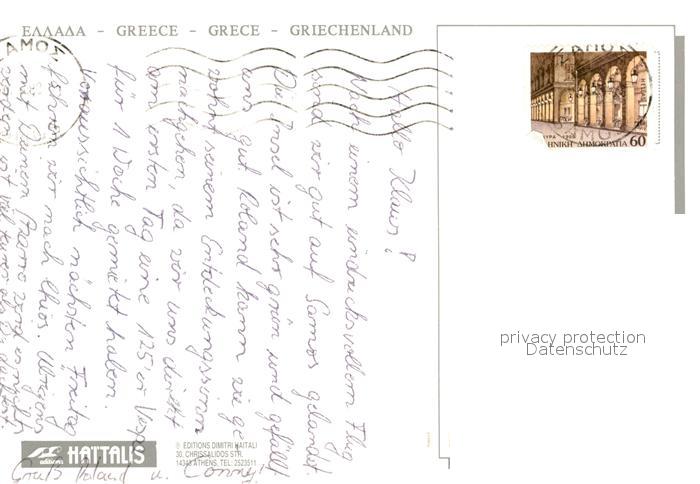 ΕΛΛΑΔΑ - GREECE - GRECE - GRIECHENLAND
ΣΑΜΟΣ
ΣΑΜΟΣ
ΗΝΙΚΗ ΔΗΜΟΚΡΑΤΙΑ 60
Hallo Klaus!
Nach einem eindrucksvollem Flug
sind wir gut auf Samos gelandet.
Die Insel ist sehr grün und gefällt
uns gut. Roland kann wie ge-
wohnt seinem Entdeckungssinn
nachgehen, da wir uns direkt
am ersten Tag eine 125'er Vespa
für 1 Woche gemietet haben.
Voraussichtlich nächsten Freitag
fahren wir nach Chios. Übrigens
mit Deinem
Gruß Roland u. Conny!
HAÏTALIS
editions
© EDITIONS DIMITRI HAITALI
30, CHRISSALIDOS STR.
14343 ATHENS, TEL: 2523511
privacy protection
Datenschutz